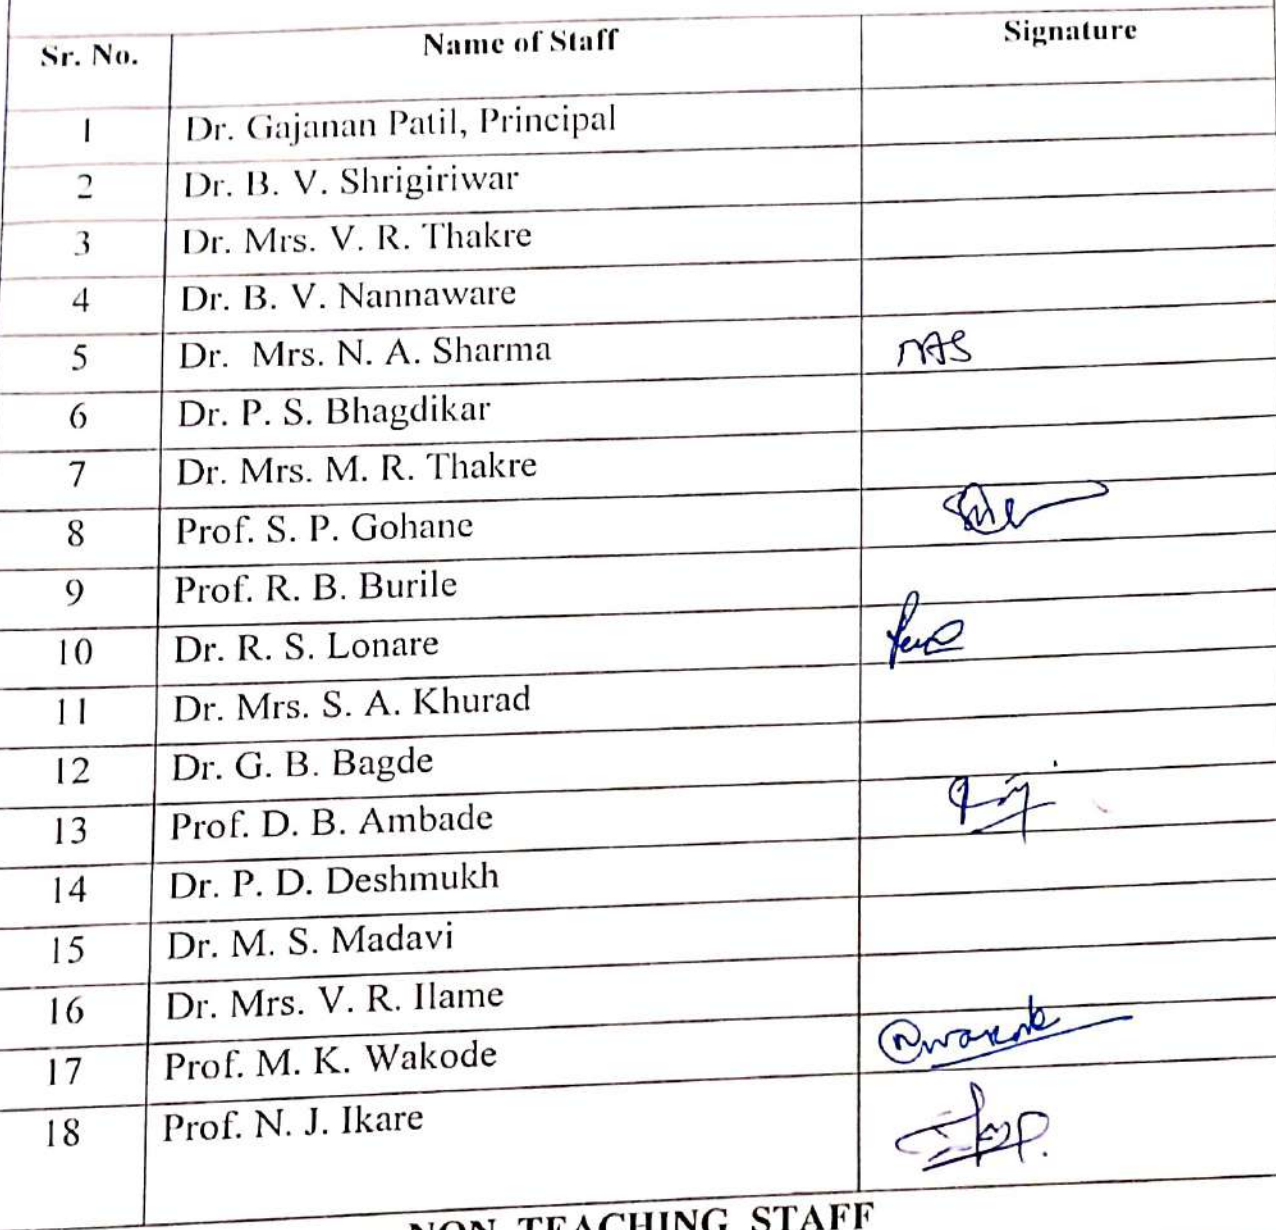 Sr. No. Name of Staff Signature
1 Dr. Gajanan Patil, Principal
2 Dr. B. V. Shrigiriwar
3 Dr. Mrs. V. R. Thakre
4 Dr. B. V. Nannaware
5 Dr. Mrs. N. A. Sharma NAS
6 Dr. P. S. Bhagdikar
7 Dr. Mrs. M. R. Thakre
8 Prof. S. P. Gohane
9 Prof. R. B. Burile
10 Dr. R. S. Lonare
11 Dr. Mrs. S. A. Khurad
12 Dr. G. B. Bagde
13 Prof. D. B. Ambade
14 Dr. P. D. Deshmukh
15 Dr. M. S. Madavi
16 Dr. Mrs. V. R. Ilame
17 Prof. M. K. Wakode
18 Prof. N. J. Ikare
NON TEACHING STAFF